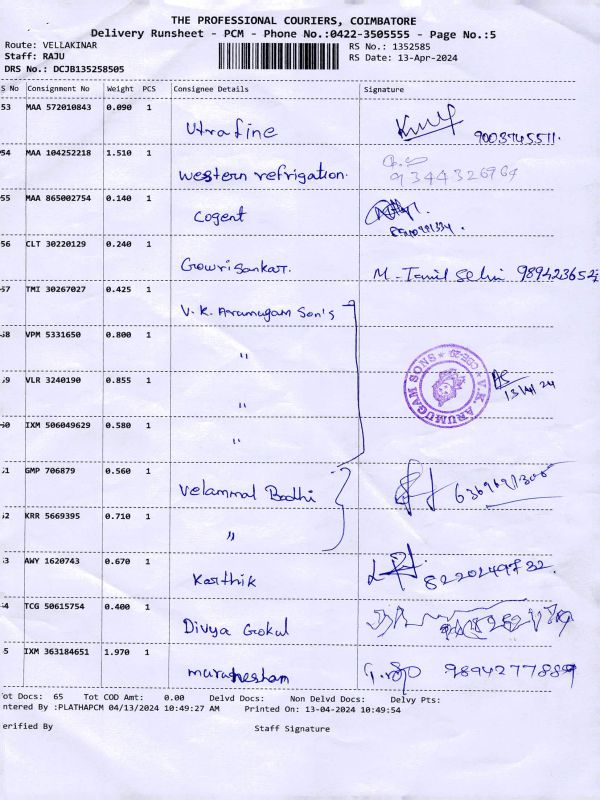 THE PROFESSIONAL COURIERS, COIMBATORE
Delivery Runsheet - PCM - Phone No.:0422-3505555 - Page No.:5
Route: VELLAKINAR
RS No.: 1352585
Staff: RAJU
RS Date: 13-Apr-2024
DRS No.: DCJB135258505
S No Consignment No Weight PCS Consignee Details Signature
53 MAA 572010843 0.090 1
Utrafine 9003745511.
54 MAA 104252218 1.510 1
western refrigation. 9344326964
55 MAA 865002754 0.140 1
Cogent
56 CLT 30220129 0.240 1
Gowrisankar. M. Tamil Selvi
57 TMI 30267027 0.425 1
V.K. Arumugam Son's
58 VPM 5331650 0.800 1
"
V.K. ARUMUGAM SONS
59 VLR 3240190 0.855 1
13/4/24
"
60 IXM 506049629 0.580 1
"
61 GMP 706879 0.560 1
Velammal Bodhi
62 KRR 5669395 0.710 1
"
63 AWY 1620743 0.670 1
Karthik 8220149732.
64 TCG 50615754 0.400 1
Divya Gokul
5 IXM 363184651 1.970 1
9894277889
ot Docs: 65 Tot COD Amt: 0.00 Delvd Docs: Non Delvd Docs: Delvy Pts:
ntered By :PLATHAPCM 04/13/2024 10:49:27 AM Printed On: 13-04-2024 10:49:54
erified By Staff Signature